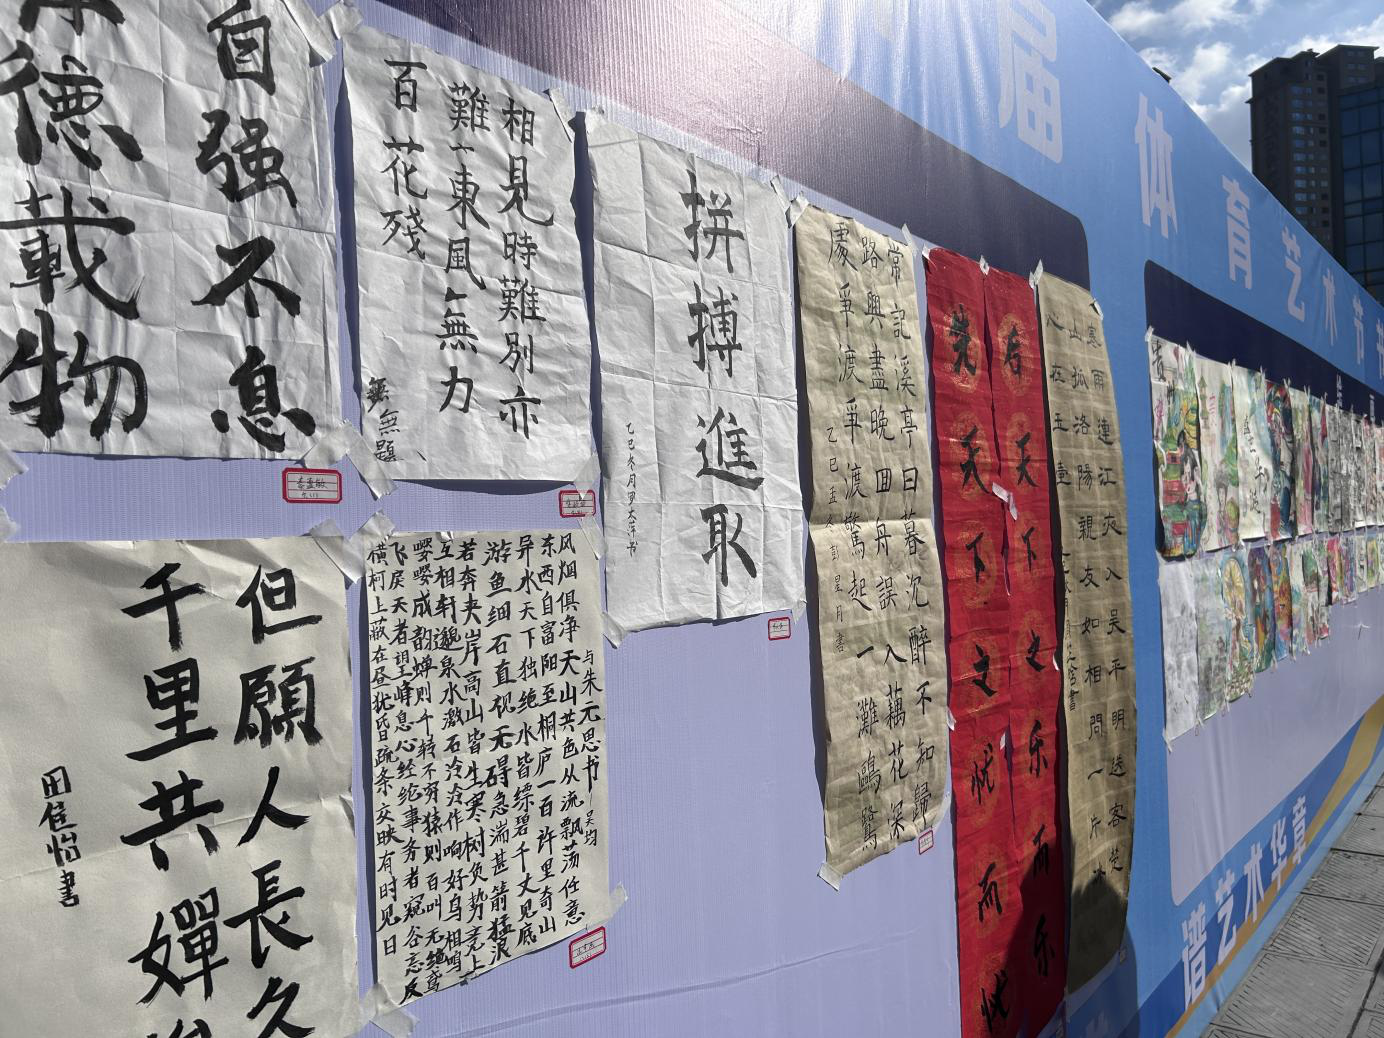 届
体育艺术节
自强不息
德载物
相見時難別亦
難東風無力
百花殘
無題
拼搏進取
乙巳冬月罗大萍书
常記溪亭日暮沉醉不知歸
路興盡晚回舟誤入藕花深
處爭渡爭渡驚起一灘鷗鷺
乙巳孟冬彭星月書
后天下之乐而乐
先天下之忧而忧
寒雨連江夾入吴平明送客楚
山孤洛陽親友如相問一片冰
心在玉壺
但願人長久
千里共嬋
田佳怡書
与朱元思书 吴均
风烟俱净天山共色从流飘荡任意
东西自富阳至桐庐一百许里奇山
异水天下独绝水皆缥碧千丈见底
游鱼细石直视无碍急湍甚箭猛浪
若奔夹岸高山皆生寒树负势竞上
互相轩邈泉水激石泠泠作响好鸟相鸣
嘤嘤成韵蝉则千转不穷猿则百叫无绝鸢
飞戾天者望峰息心经纶事务者窥谷忘反
横柯上蔽在昼犹昏疏条交映有时见日
谱艺术华章